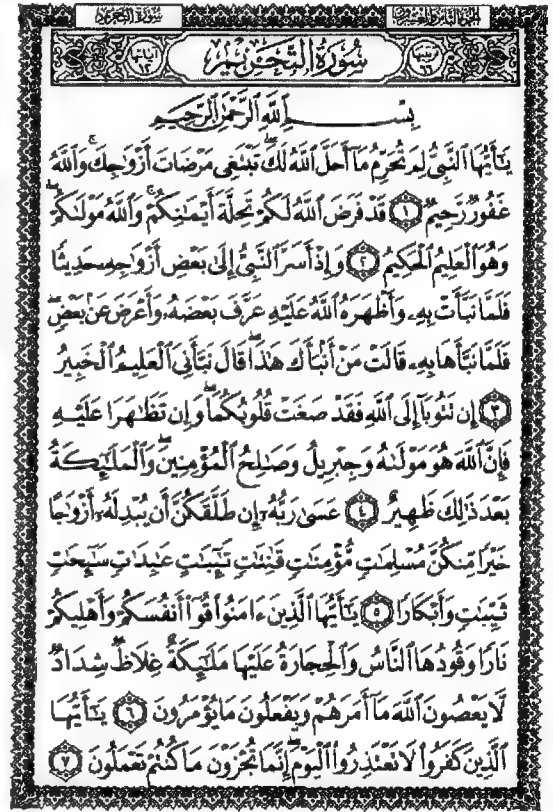 سورة التحريم
الجزء الثامن والعشرون
آياتها ١٢
سُورَةُ التَّحْرِيمِ
ترتيبها ٦٦
بِسْمِ اللَّهِ الرَّحْمَٰنِ الرَّحِيمِ
يَٰٓأَيُّهَا ٱلنَّبِىُّ لِمَ تُحَرِّمُ مَآ أَحَلَّ ٱللَّهُ لَكَ ۖ تَبْتَغِى مَرْضَاتَ أَزْوَٰجِكَ ۚ وَٱللَّهُ
غَفُورٌ رَّحِيمٌ ١ قَدْ فَرَضَ ٱللَّهُ لَكُمْ تَحِلَّةَ أَيْمَٰنِكُمْ ۚ وَٱللَّهُ مَوْلَىٰكُمْ ۖ
وَهُوَ ٱلْعَلِيمُ ٱلْحَكِيمُ ٢ وَإِذْ أَسَرَّ ٱلنَّبِىُّ إِلَىٰ بَعْضِ أَزْوَٰجِهِۦ حَدِيثًا
فَلَمَّا نَبَّأَتْ بِهِۦ وَأَظْهَرَهُ ٱللَّهُ عَلَيْهِ عَرَّفَ بَعْضَهُۥ وَأَعْرَضَ عَنۢ بَعْضٍ ۖ
فَلَمَّا نَبَّأَهَا بِهِۦ قَالَتْ مَنْ أَنۢبَأَكَ هَٰذَا ۖ قَالَ نَبَّأَنِىَ ٱلْعَلِيمُ ٱلْخَبِيرُ
٣ إِن تَتُوبَآ إِلَى ٱللَّهِ فَقَدْ صَغَتْ قُلُوبُكُمَا ۖ وَإِن تَظَٰهَرَا عَلَيْهِ
فَإِنَّ ٱللَّهَ هُوَ مَوْلَىٰهُ وَجِبْرِيلُ وَصَٰلِحُ ٱلْمُؤْمِنِينَ ۖ وَٱلْمَلَٰٓئِكَةُ
بَعْدَ ذَٰلِكَ ظَهِيرٌ ٤ عَسَىٰ رَبُّهُۥٓ إِن طَلَّقَكُنَّ أَن يُبْدِلَهُۥٓ أَزْوَٰجًا
خَيْرًا مِّنكُنَّ مُسْلِمَٰتٍ مُّؤْمِنَٰتٍ قَٰنِتَٰتٍ تَٰٓئِبَٰتٍ عَٰبِدَٰتٍ سَٰٓئِحَٰتٍ
ثَيِّبَٰتٍ وَأَبْكَارًا ٥ يَٰٓأَيُّهَا ٱلَّذِينَ ءَامَنُوا۟ قُوٓا۟ أَنفُسَكُمْ وَأَهْلِيكُمْ
نَارًا وَقُودُهَا ٱلنَّاسُ وَٱلْحِجَارَةُ عَلَيْهَا مَلَٰٓئِكَةٌ غِلَاظٌ شِدَادٌ
لَّا يَعْصُونَ ٱللَّهَ مَآ أَمَرَهُمْ وَيَفْعَلُونَ مَا يُؤْمَرُونَ ٦ يَٰٓأَيُّهَا
ٱلَّذِينَ كَفَرُوا۟ لَا تَعْتَذِرُوا۟ ٱلْيَوْمَ ۖ إِنَّمَا تُجْزَوْنَ مَا كُنتُمْ تَعْمَلُونَ ٧